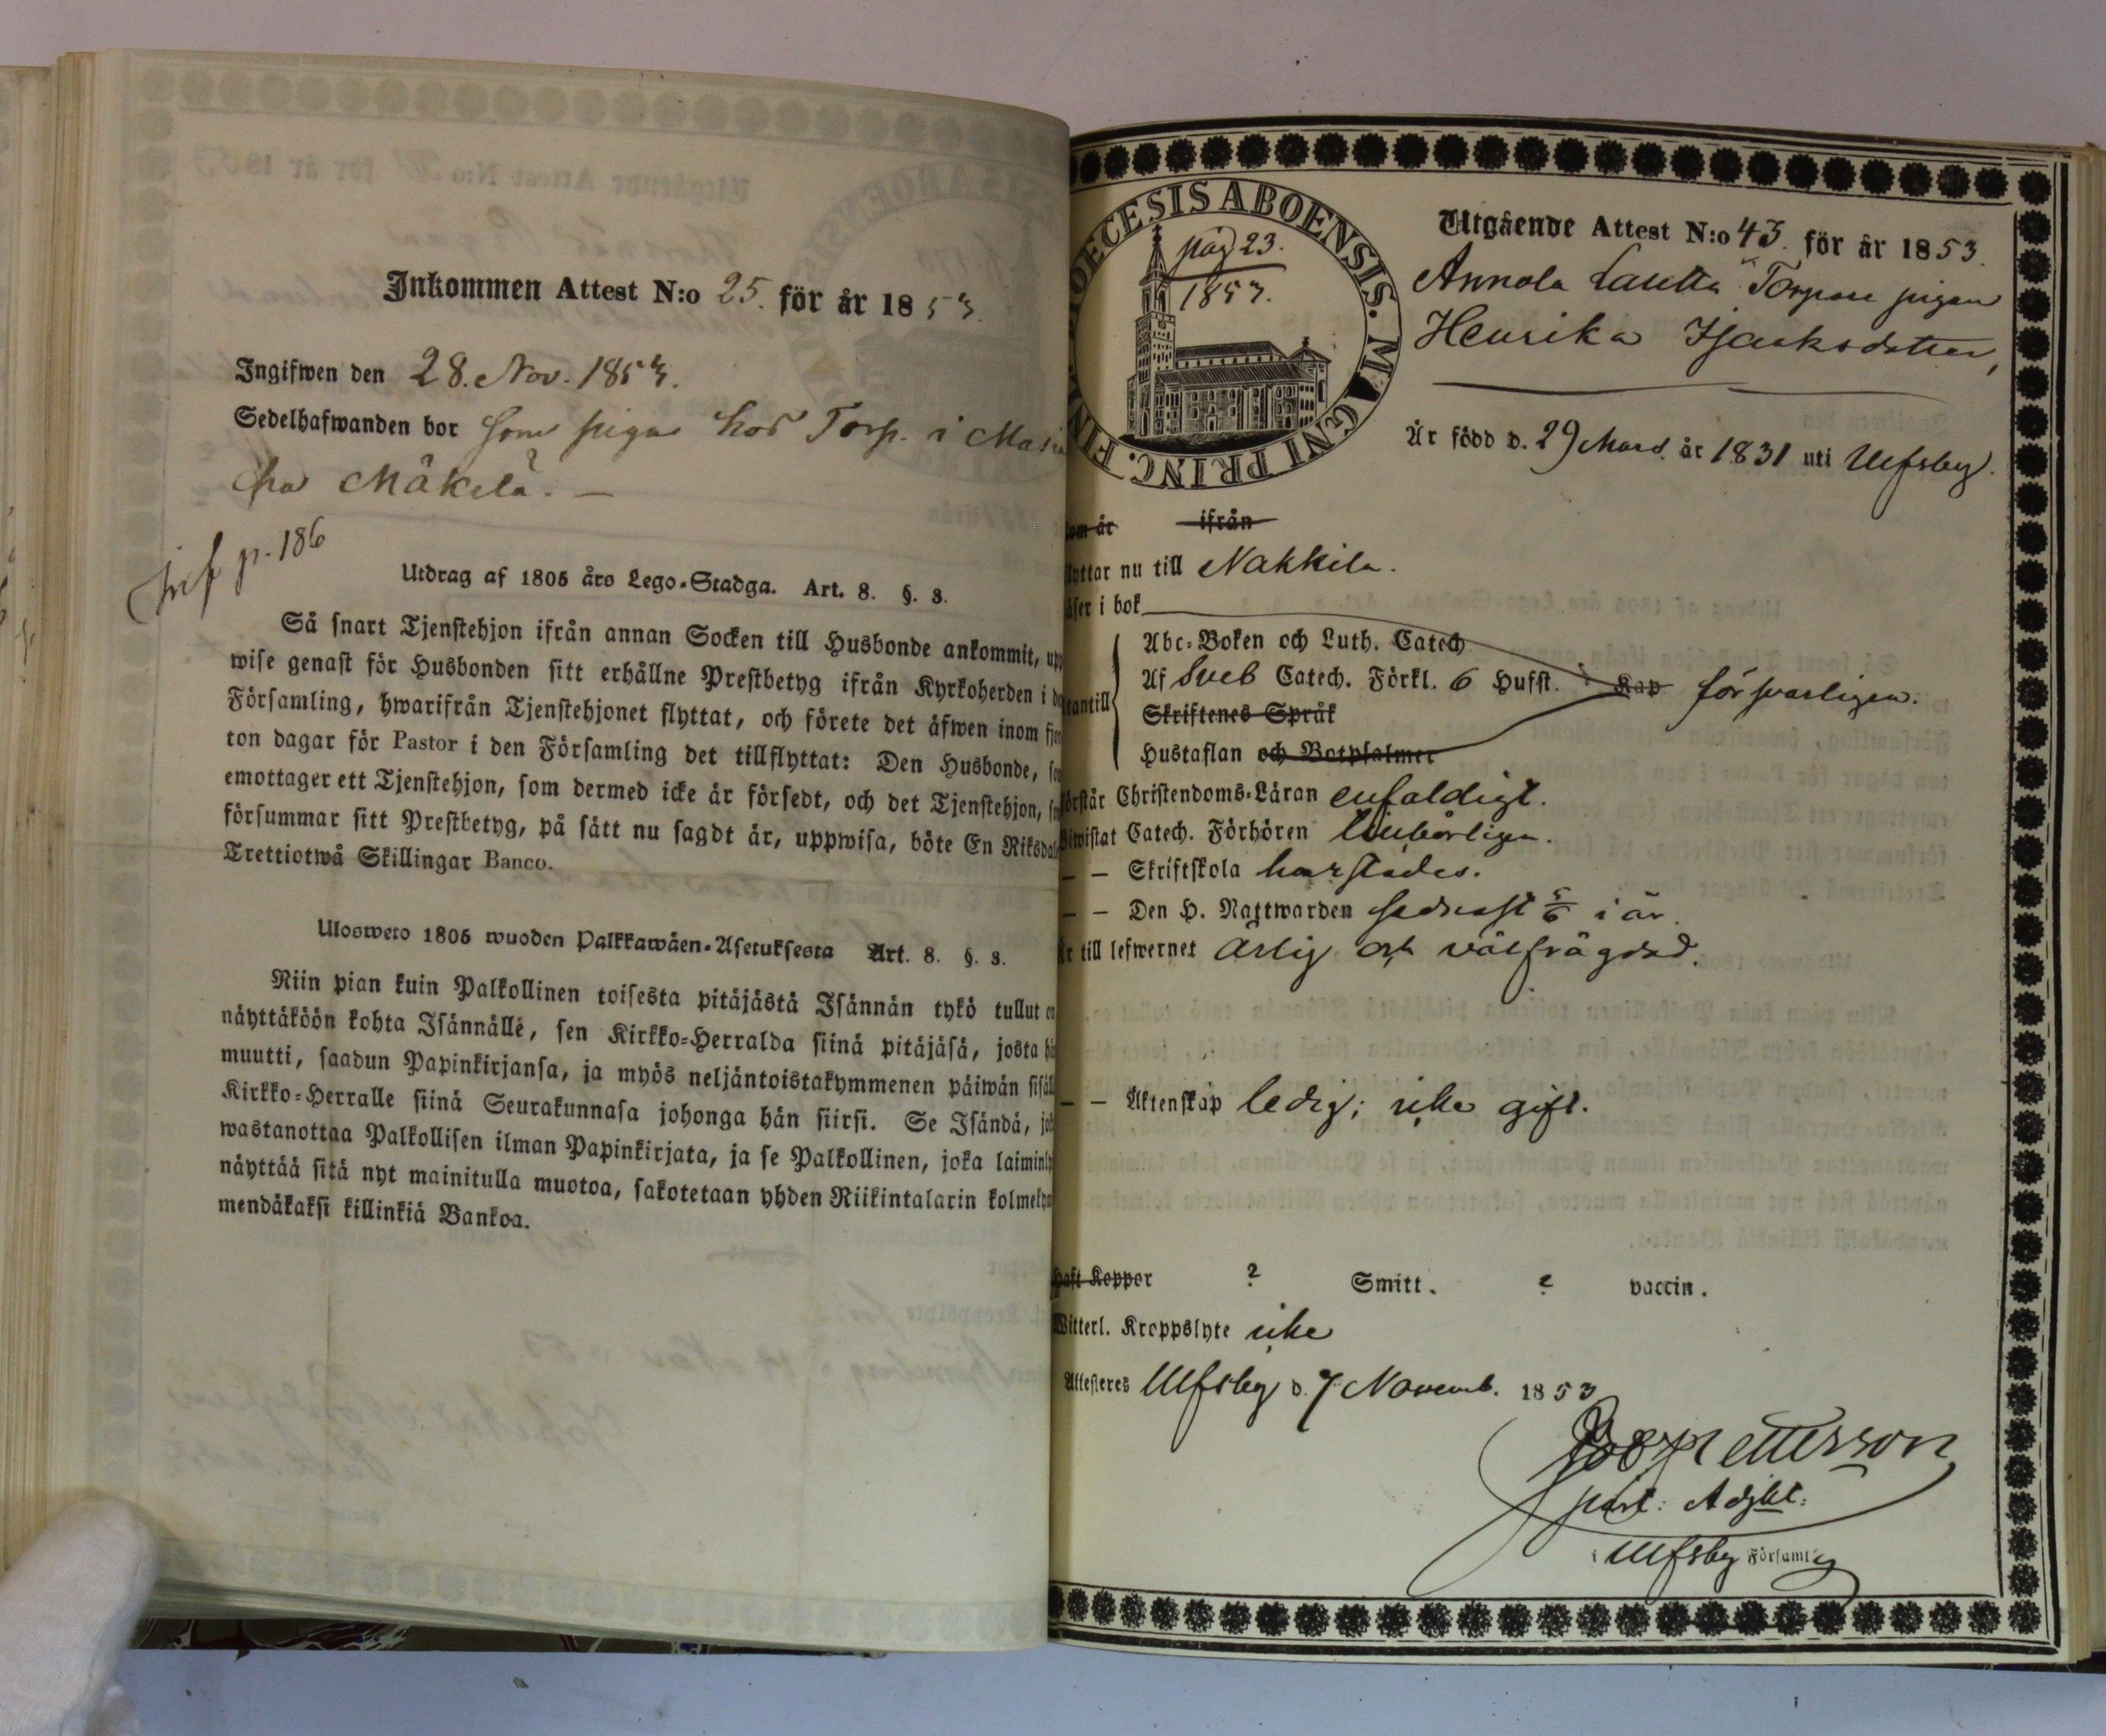 Inkommen Attest N:o 25. för år 1853.
Ingifwen den 28. Nov. 1853.
Sedelhafwanden bor som piga hos Torp. i
Mäkelä. —
p. 186
Utdrag af 1805 års Lego-Stadga. Art. 8. §. 3.
Så snart Tjenstehjon ifrån annan Socken till Husbonde ankommit, upp
wise genast för Husbonden sitt erhållne Prestbetyg ifrån Kyrkoherden i
Församling, hwarifrån Tjenstehjonet flyttat, och förete det äfwen inom fjor
ton dagar för Pastor i den Församling det tillflyttat: Den Husbonde,
emottager ett Tjenstehjon, som dermed icke är försedt, och det Tjenstehjon,
försummar sitt Prestbetyg, på sätt nu sagdt är, uppwisa, böte En Riksdal
Trettiotwå Skillingar Banco.
Ulosweto 1805 wuoden Palkkawäen-Asetuksesta Art. 8. §. 3.
Niin pian kuin Palkollinen toisesta pitäjästä Isännän tykö tullut on
näyttäköön kohta Isännälle, sen Kirkko-Herralda siinä pitäjäsä, josta hän
muutti, saadun Papinkirjansa, ja myös neljäntoistakymmenen päiwän sisäl
Kirkko-Herralle siinä Seurakunnasa johonga hän siirsi. Se Isändä, jok
wastanottaa Palkollisen ilman Papinkirjata, ja se Palkollinen, joka laiminly
näyttää sitä nyt mainitulla muotoa, sakotetaan yhden Riikintalarin kolmeky
mendäkaksi killinkiä Bankoa.
DIOECESIS ABOENSIS. MAGNI PRINC. FINL.
pag 23.
1853.
Utgående Attest N:o 43. för år 1853.
Annola Lautta Torpare pigan
Henrika Isaaksdotter,
Är född d. 29 Mars. år 1831 uti Ulfsby.
som år ifrån
flyttar nu till Nakkila.
läser i bok
Abc-Boken och Luth. Catech
Af Sveb Catech. Förkl. 6 Hufst. Kap försvarligen.
utantill
Skriftenes Språk
Hustaflan och Botpsalmer
förstår Christendoms-Läran enfaldigt.
Biwistat Catech. Förhören tillbörligen.
— — Skriftskola harstädes.
— — Den H. Nattwarden sednast 5/6 i år.
Är till lefwernet ärlig och välfrägdad.
— — Äktenskap ledig; icke gift.
Haft Koppor ? Smitt. ? vaccin.
Witterl. Kroppslyte icke
Attesteres Ulfsby d. 7 Novemb. 1853
Petterson
past: Adjkt:
i Ulfsby Församling